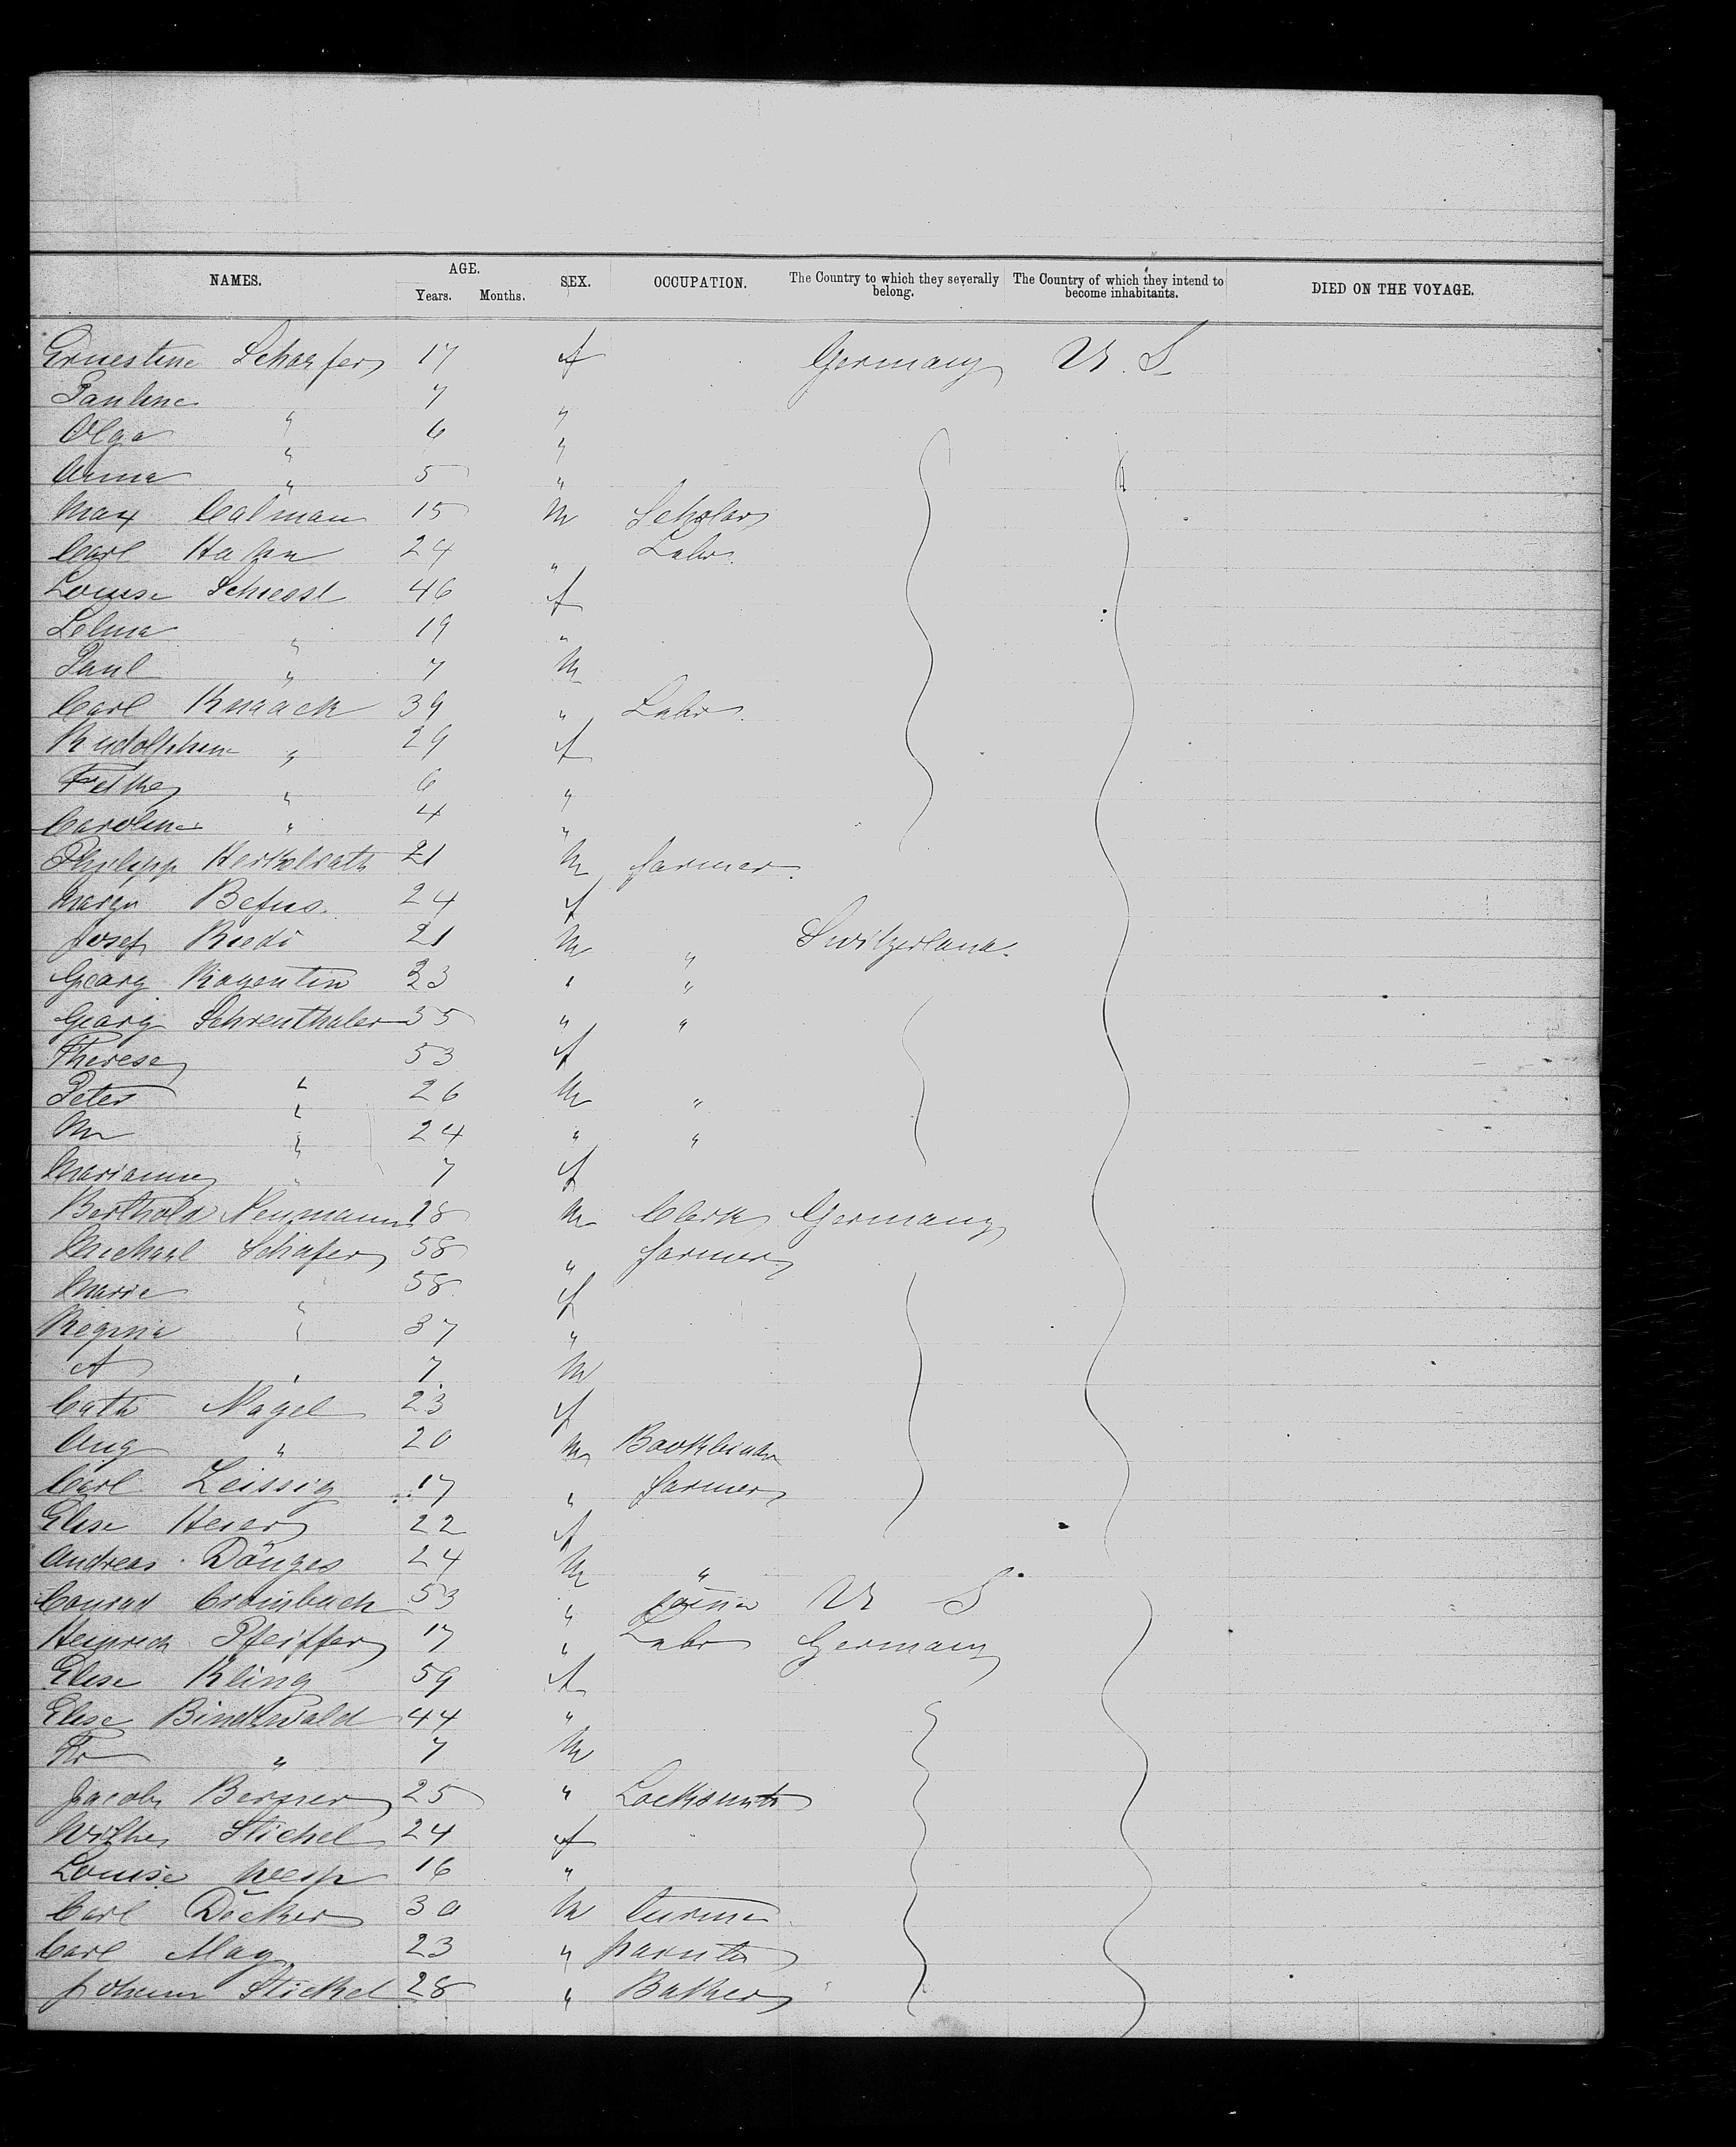 NAMES. AGE. Years. Months. SEX. OCCUPATION. The Country to which they severally belong. The Country of which they intend to become inhabitants. DIED ON THE VOYAGE.
Ernestine Scharfer 17 f Germany U. S.
Pauline " 7 "
Olga " 6 "
Anna " 5 "
Max Calman 15 M Scholar
Carl Hahn 24 " Labr.
Louise Schiessl 46 f
Selma " 19 "
Paul " 7 M
Carl Knaack 39 " Labr.
Rudolphine " 29 f
" 6 "
Caroline " 4 "
Philipp 21 M farmer.
Margr Befus. 24 f
Josef Ruedi 21 M " Switzerland.
Georg Ragentin 23 " "
Georg Schrenthaler 55 " "
Therese " 53 f
Peter " 26 M "
M " 24 " "
Marianne " 7 f
Berthold Neumann 18 M Clerk Germany
Michael Schäfer 58 " farmer
Marie " 58 f
Regina " 37 "
A " 7 M
Cath Nagel 23 f
Aug " 20 M Bookbinder
Carl Zeissig 17 " farmer
Elise Heier 22 f
Andreas Dönges 24 M "
Conrad Crombach 53 " U S
Heinrich Pfeiffer 17 " Labr Germany
Elise Kling 59 f
Elise Bindewald 44 "
Fr " 7 M
Jacob Berner 25 " Locksmith
Wilhe Stichel 24 f
Louise Wesp 16 "
Carl Däcker 30 M turner
Carl May 23 " painter
Johann Stickel 28 " Baker